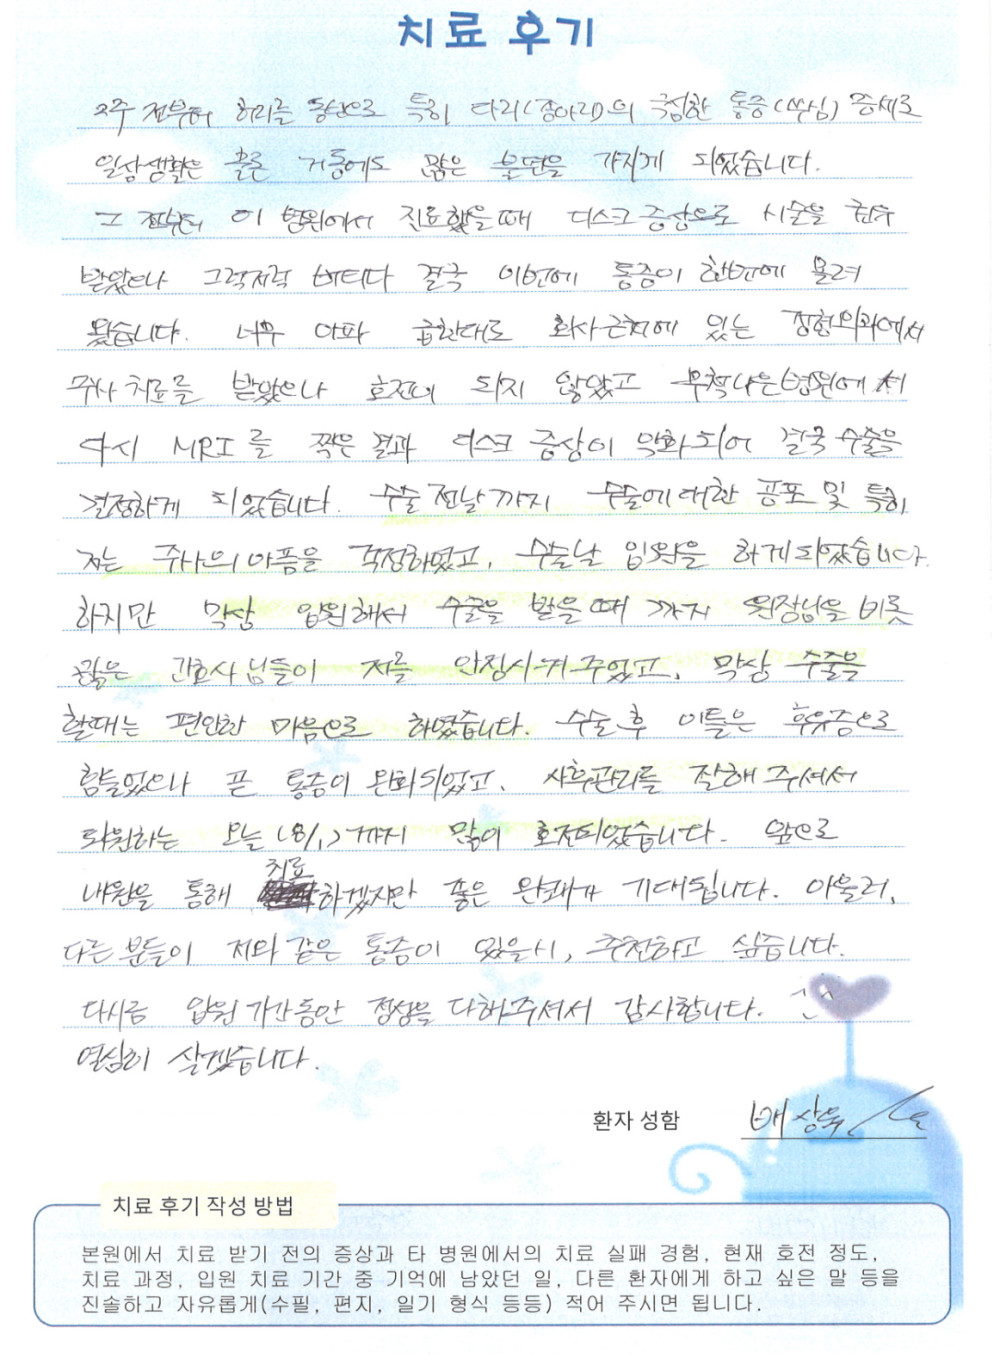 치료 후기
2주 전부터 허리를 중심으로 특히 다리(종아리)의 극심한 통증(쑤심) 증세로
일상생활은 물론 거동에도 많은 불편을 가지게 되었습니다.
그 전부터 이 병원에서 진료했을때 디스크증상으로 시술을
받았으나 그럭저럭 버티다 결국 이번에 통증이 한번에 몰려
왔습니다. 너무 아파 급한대로 회사근처에 있는 정형외과에서
주사치료를 받았으나 호전이 되지 않았고 우척나은병원에서
다시 MRI를 찍은결과 디스크 증상이 악화되어 결국 수술을
결정하게 되었습니다. 수술 전날까지 수술에대한 공포 및 특히
저는 주사의 아픔을 걱정하였고, 수술날 입원을 하게되었습니다.
하지만 막상 입원해서 수술을 받을때 까지 원장님을 비롯
많은 간호사님들이 저를 안정시켜주었고, 막상 수술을
할때는 편안한 마음으로 하였습니다. 수술후 이틀은 후유증으로
힘들었으나 큰 통증이 완화되었고, 사후관리를 잘해주셔서
퇴원하는 오늘 (8/1)까지 많이 호전되었습니다. 앞으로
내원을 통해 치료하겠지만 좋은 완쾌가 기대됩니다. 아울러,
다른분들이 저와 같은 통증이 있을시, 추천하고 싶습니다.
다시금 입원기간동안 정성을 다해주셔서 감사합니다.
열심히 살겠습니다.
환자 성함 배상욱
치료 후기 작성 방법
본원에서 치료 받기 전의 증상과 타 병원에서의 치료 실패 경험, 현재 호전 정도,
치료 과정, 입원 치료 기간 중 기억에 남았던 일, 다른 환자에게 하고 싶은 말 등을
진솔하고 자유롭게(수필, 편지, 일기 형식 등등) 적어 주시면 됩니다.